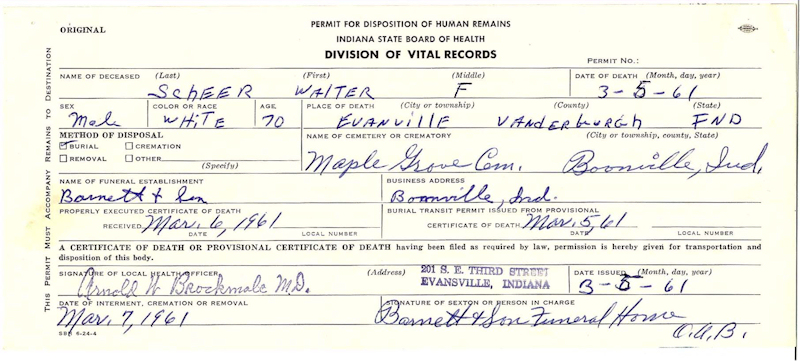 ORIGINAL
PERMIT FOR DISPOSITION OF HUMAN REMAINS
INDIANA STATE BOARD OF HEALTH
DIVISION OF VITAL RECORDS
PERMIT NO.:
THIS PERMIT MUST ACCOMPANY REMAINS TO DESTINATION
NAME OF DECEASED (Last) (First) (Middle) DATE OF DEATH (Month, day, year)
SCHEER WALTER F 3-5-61
SEX COLOR OR RACE AGE PLACE OF DEATH (City or township) (County) (State)
Male WHITE 70 EVANVILLE VANDERBURGH IND
METHOD OF DISPOSAL NAME OF CEMETERY OR CREMATORY (City or township, county, State)
BURIAL CREMATION
REMOVAL OTHER (Specify)
Maple Grove Cem. Boonville, Ind.
NAME OF FUNERAL ESTABLISHMENT BUSINESS ADDRESS
Barnett & Son Boonville, Ind.
PROPERLY EXECUTED CERTIFICATE OF DEATH BURIAL TRANSIT PERMIT ISSUED FROM PROVISIONAL
RECEIVED Mar. 6, 1961 CERTIFICATE OF DEATH Mar. 5, 61
DATE LOCAL NUMBER DATE LOCAL NUMBER
A CERTIFICATE OF DEATH OR PROVISIONAL CERTIFICATE OF DEATH having been filed as required by law, permission is hereby given for transportation and
disposition of this body.
SIGNATURE OF LOCAL HEALTH OFFICER (Address) 201 S. E. THIRD STREET DATE ISSUED (Month, day, year)
Arnold W Brockmole M.D. EVANSVILLE, INDIANA 3-5-61
DATE OF INTERMENT, CREMATION OR REMOVAL SIGNATURE OF SEXTON OR PERSON IN CHARGE
Mar. 7, 1961 Barnett & Son Funeral Home
O.A.B.
SBH 6-24-4